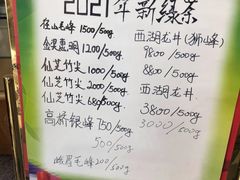 2021年新绿茶
径山毛峰 1500/500g
金奖惠明 1200/500g
仙芝竹尖 1000/500g
仙芝竹尖 200/500g
仙芝竹尖 680/500g
高桥银峰 750/500g
500/500g
峨眉毛峰 200/500g
西湖龙井(狮峰)
9800/500g
8800/500g
西湖龙井
3800/500g
3000/500g